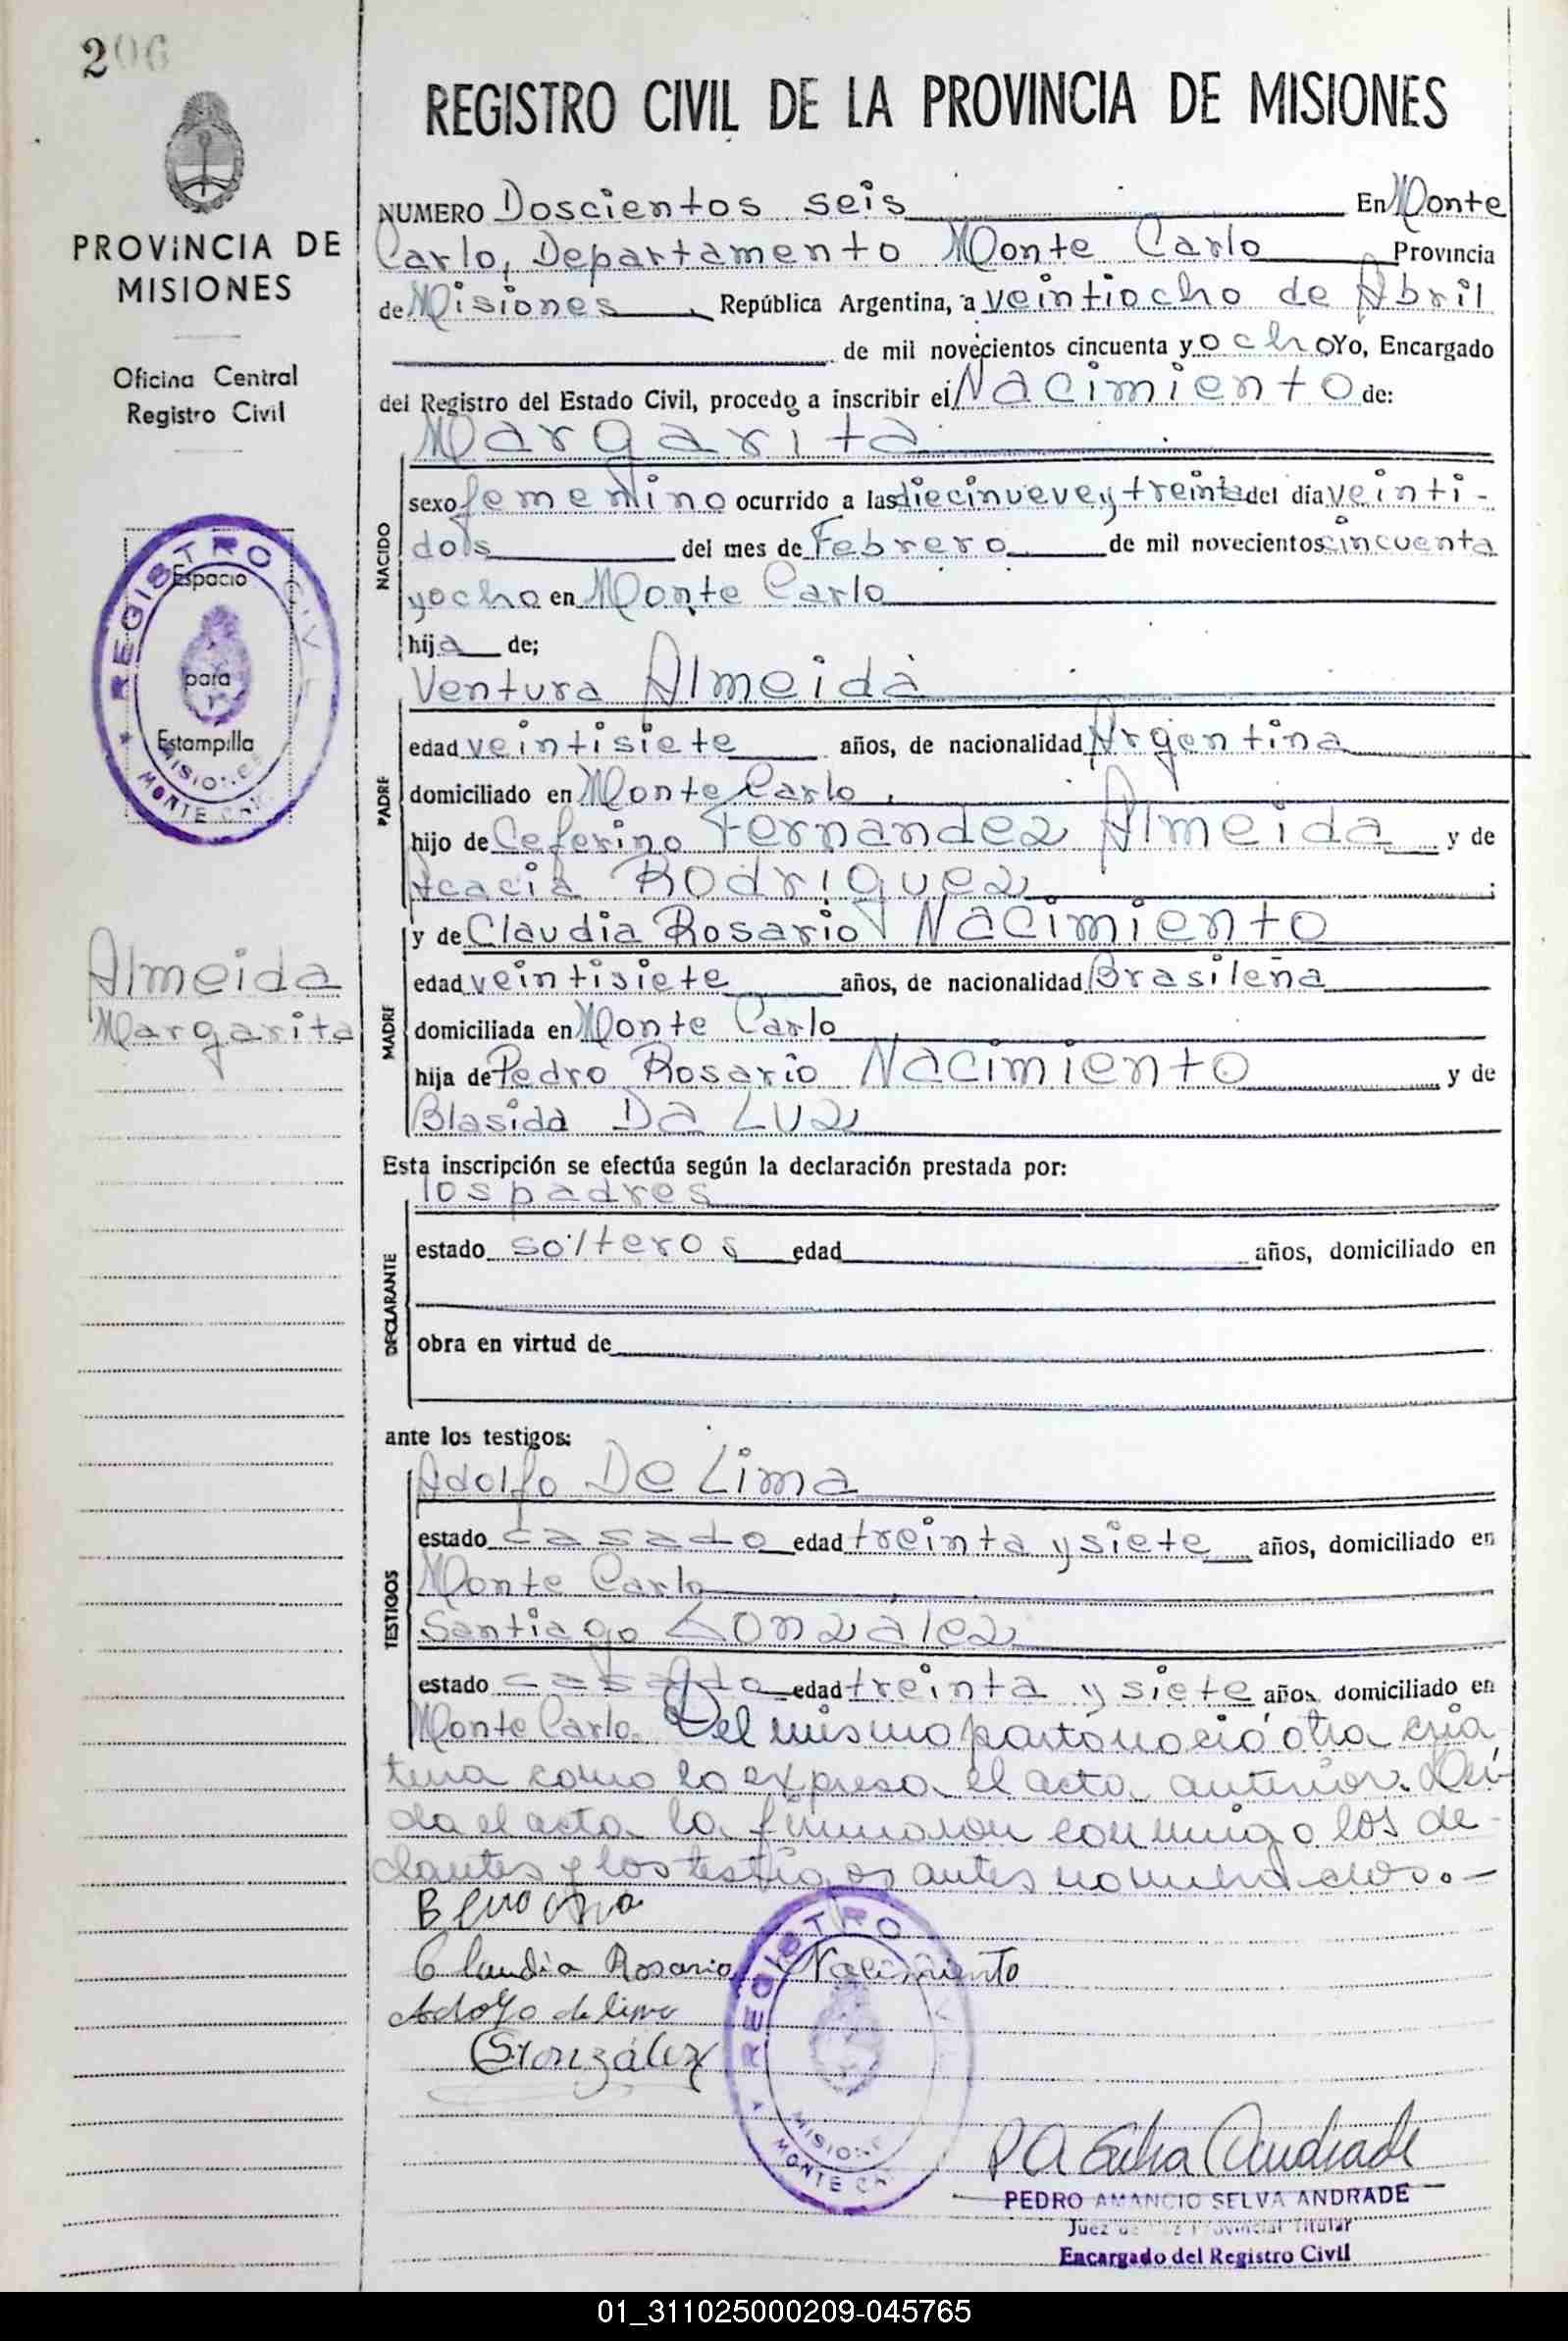 206
REGISTRO CIVIL DE LA PROVINCIA DE MISIONES
PROVINCIA DE
MISIONES
Oficina Central
Registro Civil
REGISTRO CIVIL
Espacio
para
Estampilla
MISIONES
MONTE
Almeida
Margarita
NUMERO Doscientos seis En Monte
Carlo, Departamento Monte Carlo Provincia
de Misiones, República Argentina, a veintiocho de Abril
de mil novecientos cincuenta y ocho Yo, Encargado
del Registro del Estado Civil, procedo a inscribir el Nacimiento de:
Margarita
NACIDO
sexo femenino ocurrido a las diecinueve y treinta del día veinti-
dois del mes de Febrero de mil novecientos cincuenta
y ocho en Monte Carlo
hija de;
Ventura Almeida
PADRE
edad veintisiete años, de nacionalidad Argentina
domiciliado en Monte Carlo
hijo de Ceferino Fernandez Almeida y de
Acacia Rodriguez
y de Claudia Rosario Nacimiento
MADRE
edad veintisiete años, de nacionalidad Brasileña
domiciliada en Monte Carlo
hija de Pedro Rosario Nacimiento y de
Blasida Da Luz
Esta inscripción se efectúa según la declaración prestada por:
los padres
DECLARANTE
estado solteros edad años, domiciliado en
obra en virtud de
ante los testigos:
Adolfo De Lima
TESTIGOS
estado casado edad treinta y siete años, domiciliado en
Monte Carlo
Santiago Gonzalez
estado casado edad treinta y siete años, domiciliado en
Monte Carlo. Del mismo parto nació otra cria
tura como lo expresa el acta anterior. Leí-
da el acta la firmaron conmigo los de-
clantes y los testigos antes nombrados.-
Claudia Rosario Nacimiento
Adolfo de lima
SGonzález
REGISTRO
MISIONE
MONTE
P A Selva Andrade
PEDRO AMANCIO SELVA ANDRADE
Juez Provincial Titular
Encargado del Registro Civil
01_311025000209-045765